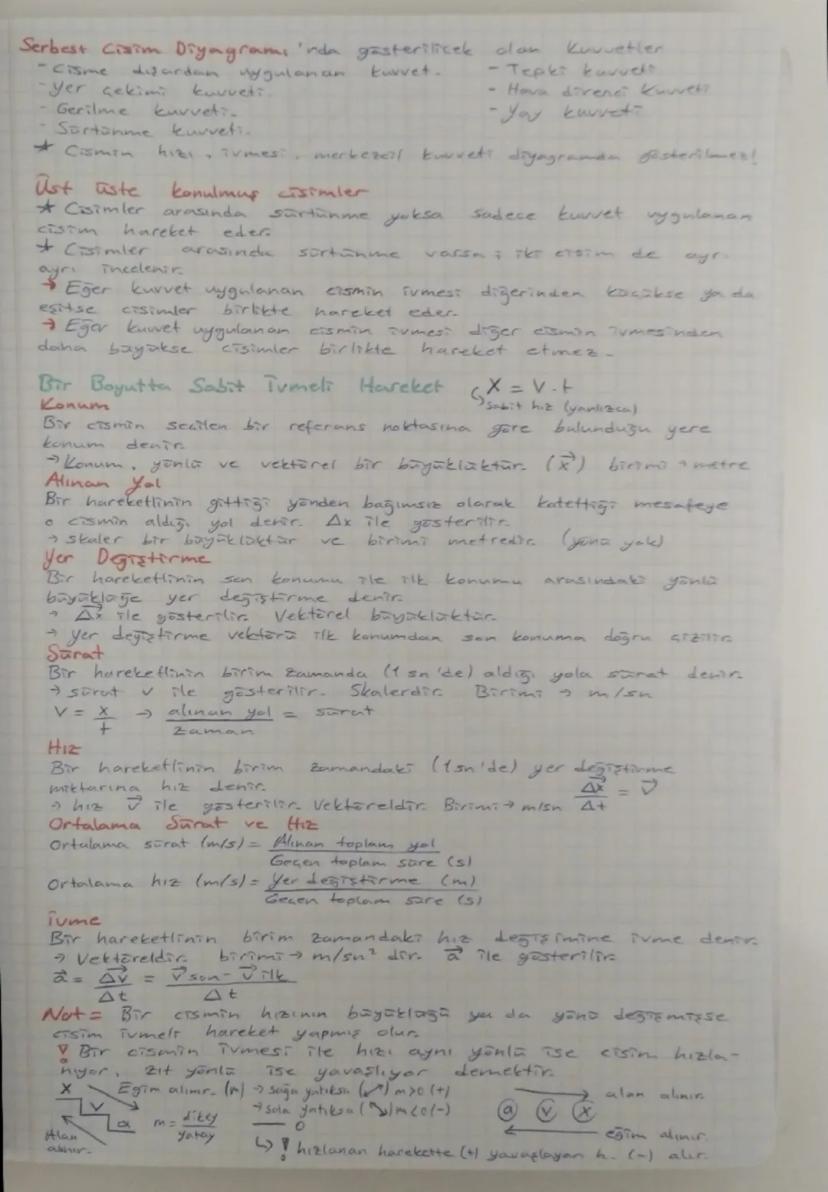 Serbest Cisim Diyagramı'nda gösterilicek olan kuvvetler
- Cisme dışardan uygulanan kuvvet.
- Yer çekimi kuvveti.
- Gerilme kuvveti.
- Sürtünme kuvveti.
- Tepki kuvveti
- Hava direnci kuvveti
- Yay kuvveti
★ Cismin hızı, ivmesi, merkezcil kuvveti diyagramda gösterilmez!
Üst üste konulmuş cisimler
★ Cisimler arasında sürtünme yoksa sadece kuvvet uygulanan
cisim hareket eder.
★ Cisimler arasında sürtünme varsa; iki cisim de ayrı
ayrı incelenir.
→ Eğer kuvvet uygulanan cismin ivmesi diğerinden küçükse ya da
eşitse cisimler birlikte hareket eder.
→ Eğer kuvvet uygulanan cismin ivmesi diğer cismin ivmesinden
daha büyükse cisimler birlikte hareket etmez.
Bir Boyutta Sabit İvmeli Hareket
X = V . t
↳ sabit hız (yanlızca)
Konum
Bir cismin seçilen bir referans noktasına göre bulunduğu yere
konum denir.
→ Konum, yönlü ve vektörel bir büyüklüktür. (x⃗) birimi → metre
Alınan Yol
Bir hareketlinin gittiği yönden bağımsız olarak katettiği mesafeye
o cismin aldığı yol denir. Δx ile gösterilir.
→ skaler bir büyüklüktür ve birimi metredir. (yönü yok)
Yer Değiştirme
Bir hareketlinin son konumu ile ilk konumu arasındaki yönlü
büyüklüğe yer değiştirme denir.
→ Δx⃗ ile gösterilir. Vektörel büyüklüktür.
→ yer değiştirme vektörü ilk konumdan son konuma doğru çizilir.
Sürat
Bir hareketlinin birim zamanda (1 sn'de) aldığı yola sürat denir.
→ sürat v ile gösterilir. Skalerdir. Birimi → m/sn
V = x/t → alınan yol/zaman = sürat
Hız
Bir hareketlinin birim zamandaki (1sn'de) yer değiştirme
miktarına hız denir.
Δx⃗/Δt = v⃗
→ hız v⃗ ile gösterilir. Vektöreldir. Birimi → m/sn
Ortalama Sürat ve Hız
Ortalama sürat (m/s) = Alınan toplam yol/Geçen toplam süre (s)
Ortalama hız (m/s) = Yer değiştirme (m)/Geçen toplam süre (s)
İvme
Bir hareketlinin birim zamandaki hız değişimine ivme denir.
→ Vektöreldir. birimi → m/sn² dir. a⃗ ile gösterilir.
a⃗ = Δv⃗/Δt = v⃗son - v⃗ilk/Δt
Not = Bir cismin hızının büyüklüğü ya da yönü değişmişse
cisim ivmeli hareket yapmış olur.
! Bir cismin ivmesi ile hızı aynı yönlü ise cisim hızla-
nıyor, zıt yönlü ise yavaşlıyor demektir.
X
V
a
Eğim alınır. (m) → sağa yatıksa (↗) m>0 (+)
→ sola yatıksa (↘) m<0 (-)
— 0
m = dikey/yatay
Alan
alınır.
alan alınır.
a v x
eğim alınır.
↳ ! hızlanan harekette (+) yavaşlayan h. (-) alır.